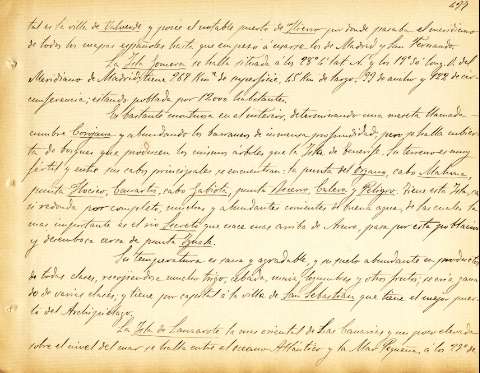 tal es la villa de Valverde y posee el notable puerto de Hierro por donde pasaba el meridiano
de todos los mapas españoles hasta que empezó a usarse los de Madrid y San Fernando.
La Isla Gomera se halla situada á los 28° lat. N. y los 13° long. O. del
Meridiano de Madrid, tiene 268 Kms. de superficie, 45 Kms. de largo, 39 de ancho y 122 de cir-
cunferencia; estando poblada por 12000 habitantes.
Es bastante montuosa en el interior, determinando una meseta llamada
cumbre y abundando los barrancos de inmensa profundidad, pero se halla cubier-
ta de bosques que producen los mismos árboles que la Isla de Tenerife. Su terreno es muy
fértil y entre sus cabos principales se encuentran: la punta del cabo
punta cabo punta y Peligro. Tiene esta Isla, ca-
si redonda por completo, muchas y abundantes corrientes de buena agua, de las cuales la
mas importante es el rio que nace mas arriba de pasa por esta poblacion
y desemboca cerca de punta
Su temperatura es sana y agradable, y su suelo abundante en productos
de todas clases, recogiéndose mucho trigo, cebada, maiz, legumbres y otros frutos; se cria gana-
do de varias clases, y tiene por capital á la villa de San Sebastian que tiene el mejor puer-
to del Archipiélago.
La Isla de Lanzarote la mas oriental de las Canarias y un poco elevada
sobre el nivel del mar se halla entre el oceano Atlántico y la Mar Pequeña, á los 29° de